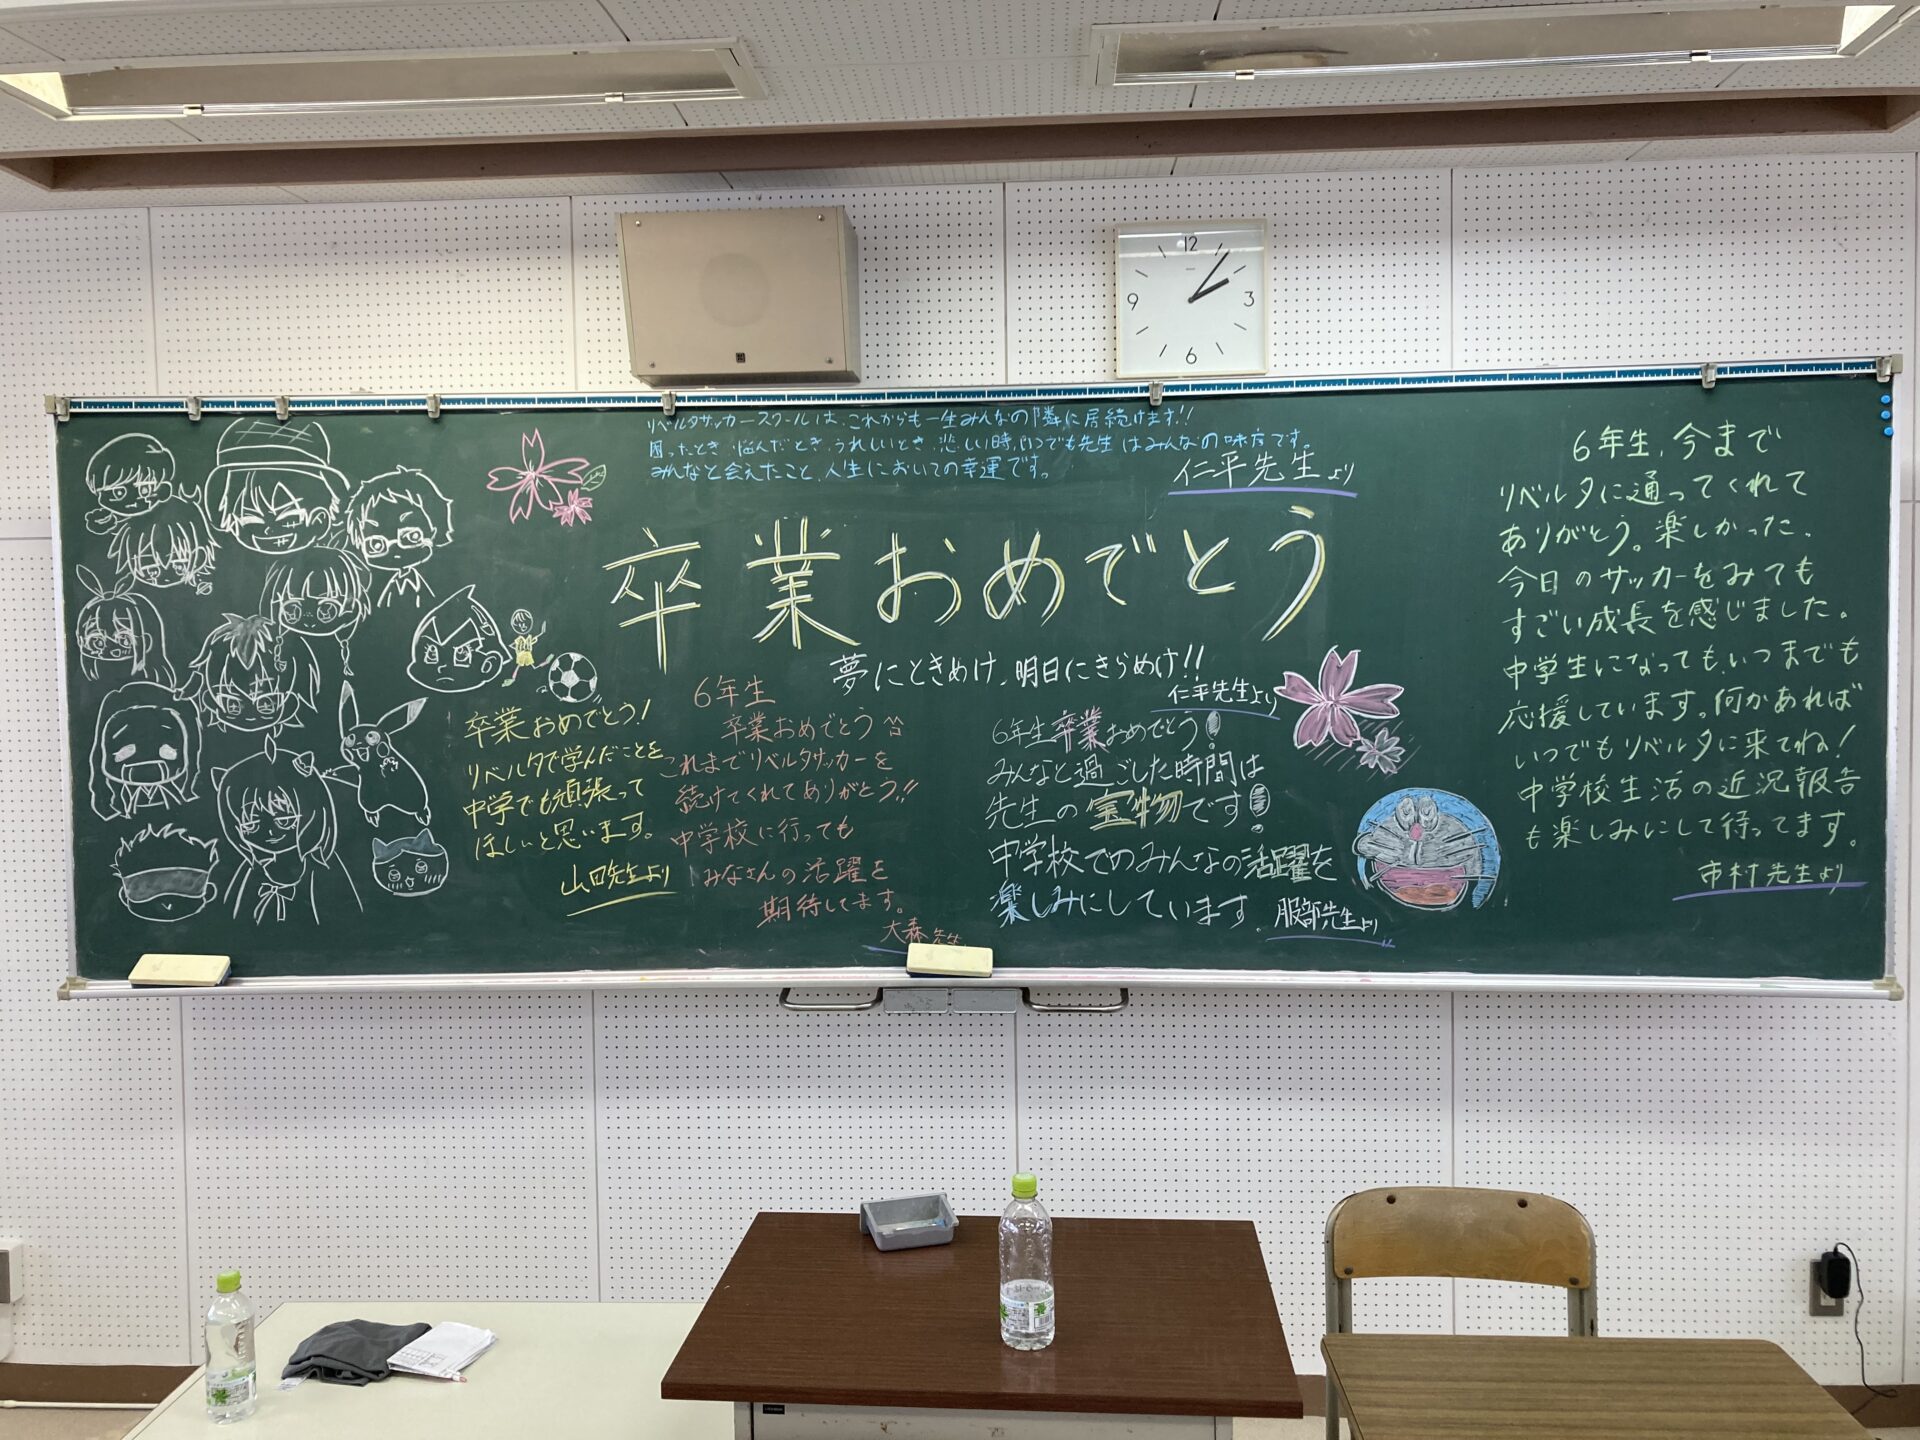 12
3
6
9
リベルタサッカースクールは、これからも一生みんなの隣に居続けます!!
困ったとき、悩んだとき、うれしいとき、悲しい時、いつでも先生はみんなの味方です。
みんなと会えたこと、人生においての幸運です。
仁平先生より
卒業おめでとう
夢にときめけ、明日にきらめけ!!
仁平先生より
卒業おめでとう!
リベルタで学んだことを
中学でも頑張って
ほしいと思います。
山口先生より
6年生
卒業おめでとう^^
これまでリベルタサッカーを
続けてくれてありがとう!!
中学校に行っても
みなさんの活躍を
期待してます。
大森先生
6年生卒業おめでとう!
みんなと過ごした時間は
先生の宝物です!
中学校でのみんなの活躍を
楽しみにしています。
服部先生より
6年生、今まで
リベルタに通ってくれて
ありがとう。楽しかった、
今日のサッカーをみても
すごい成長を感じました。
中学生になっても、いつまでも
応援しています。何かあれば
いつでもリベルタに来てね!
中学校生活の近況報告
も楽しみにして待ってます。
市村先生より